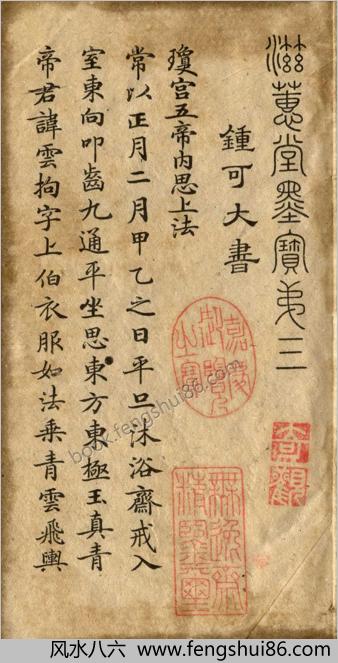 滋蕙堂墨寶弟三
鍾可大書
瓊宫五帝内思上法
常以正月二月甲乙之日平旦沐浴齋戒入
室東向叩齒九通平坐思東方東極玉真青
帝君諱雲拘字上伯衣服如法乗青雲飛輿
book.fengshui86.com
风水八六 www.fengshui86.com